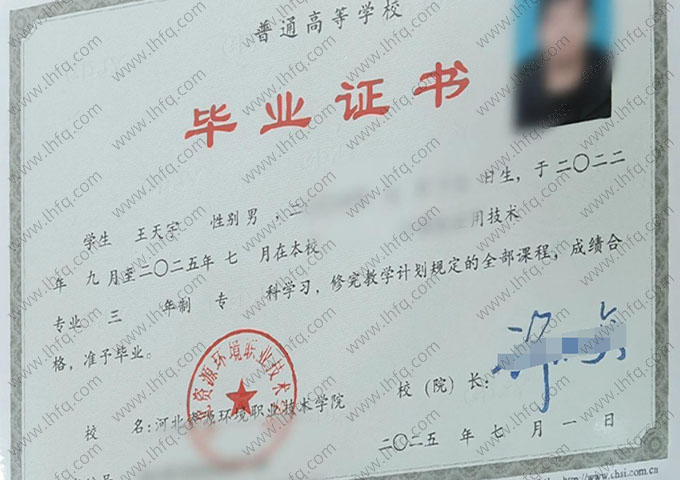 普通高等学校
毕业证书
学生 王天宇 性别 男，二 日生，于二〇二二
年 九 月至二〇二五年 七 月在本校 用技术
专业 三 年制 专 科学习，修完教学计划规定的全部课程，成绩合
格，准予毕业。
资源环境职业技术
校 名：河北资源环境职业技术学院
校（院）长：
二〇二五 年 七 月 一 日
http://www.chsi.com.cn
www.lhfq.com